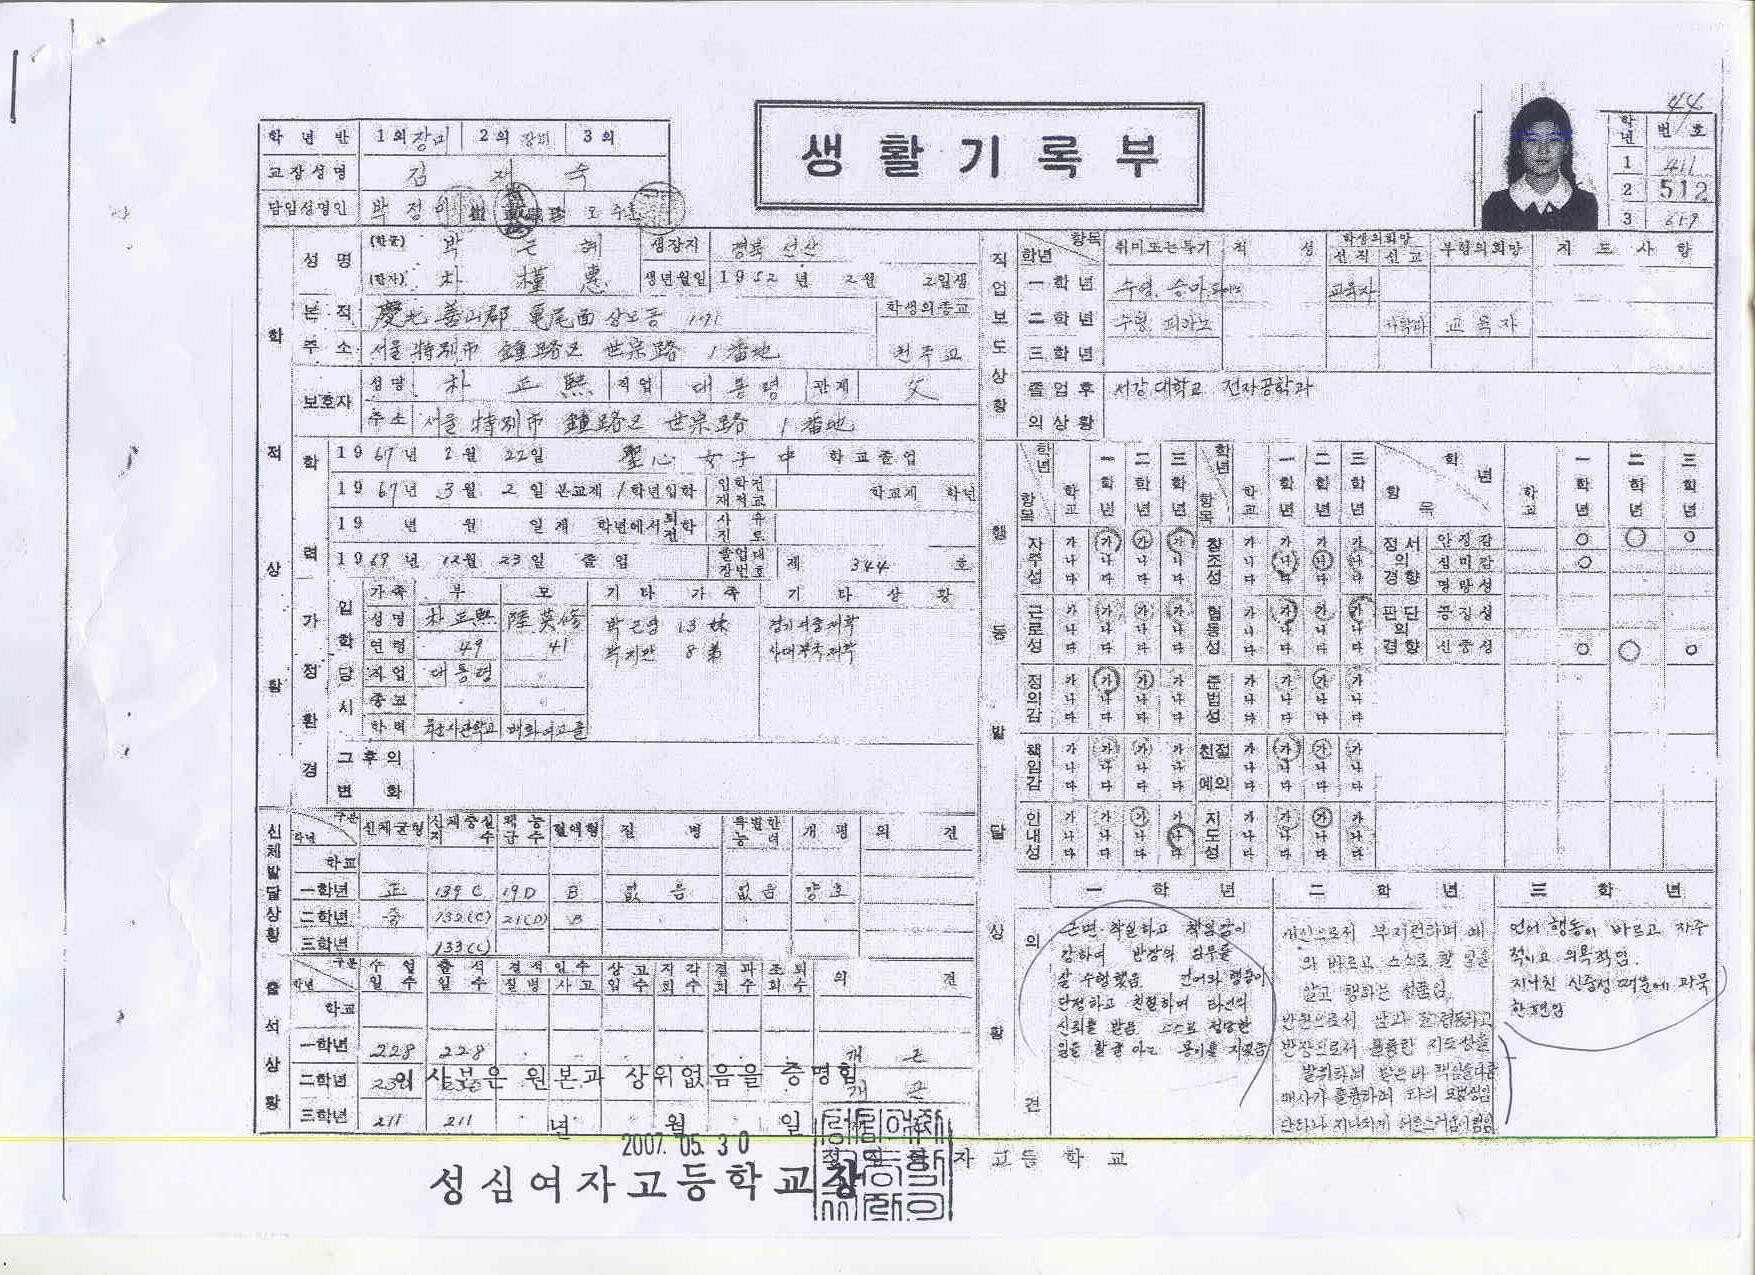 생활기록부
학년반 1의 장미 2의 장미 3의
교장성명 김재숙
담임성명인 박정
44
학년 번호
1 411
2 512
3 619
학적상황
성명 (한글) 박근혜 생장지 경북 선산
(한자) 朴槿惠 생년월일 1952年 2월 2일생
본적 慶北 善山郡 亀尾面 상모동 171 학생의종교
주소 서울特別市 鍾路区 世宗路 1番地 천주교
보호자 성명 朴正熙 직업 대통령 관계 父
주소 서울特別市 鍾路区 世宗路 1番地
학력
1967년 2월 22일 聖心女子中 학교졸업
1967년 3월 2일 본교제 1학년입학 입학전재적교 학교제 학년
19 년 월 일제 학년에서 퇴전학 사유진로
1969년 12월 23일 졸업 졸업대장번호 제 344 호
가정환경
입학당시
가족 부 모 기타가족 기타상황
성명 朴正熙 陸英修 박근영 13 妹 경기여중재학
연령 49 41 박지만 8 弟 사대부국재학
직업 대통령
종교
학력 육군사관학교 배화여고졸
그후의변화
신체발달상황
구분 학년 신체균형 신체충실지수 체능급수 혈액형 질병 특별한능력 개평 의견
학교
一학년 正 139 C 19D B 없음 없음 양호
二학년 중 132(C) 21(D) B
三학년 133(C)
출석상황
구분 학년 수업일수 출석일수 결석일수 질병 사고 상고일수 지각회수 결과회수 조퇴회수 의견
학교
一학년 228 228 개근
二학년 개근
三학년 211 211
이 사본은 원본과 상위없음을 증명함
년 월 일
2007. 05. 30
성심여자고등학교장
여자고등학교
직업보도상황
항목 학년 취미또는특기 적성 학생의희망 선직 선교 부형의희망 지도사항
一학년 수영, 승마, 교육자
二학년 수영, 피아노 교육자
三학년
졸업후의상황 서강대학교 전자공학과
행동발달상황
학년 항목 학교 一학년 二학년 三학년 학년 항목 학교 一학년 二학년 三학년 학년 항목 학교 一학년 二학년 三학년
자주성 가 나 다 창조성 가 나 다 정서의경향 안정감 심미감 명랑성
근로성 가 나 다 협동성 가 나 다 판단의경향 공정성 신중성
정의감 가 나 다 준법성 가 나 다
책임감 가 나 다 친절예의 가 나 다
인내성 가 나 다 지도성 가 나 다
의견
一학년
근면 착실하고 책임감이
강하여 반장의 임무를
잘 수행했음 언어와 행동이
단정하고 친절하며 타인의
신뢰를 받음 스스로 정당한
일을 할 줄 아는 용이를 지녔음
二학년
부지런하며 예
의 바르고 스스로 할 일을
알고 행하는 성품임.
반원으로서 남과 잘 협동하고
반장으로서 훌륭한 지도성을
발휘하며 맡은 바 책임을 다함
매사가 훌륭하여 타의 모범적임
단 하나 지나치게 어른스러움이 흠임
三학년
언어 행동이 바르고 자주
적이고 의욕적임.
지나친 신중성 때문에 과묵
한 편임